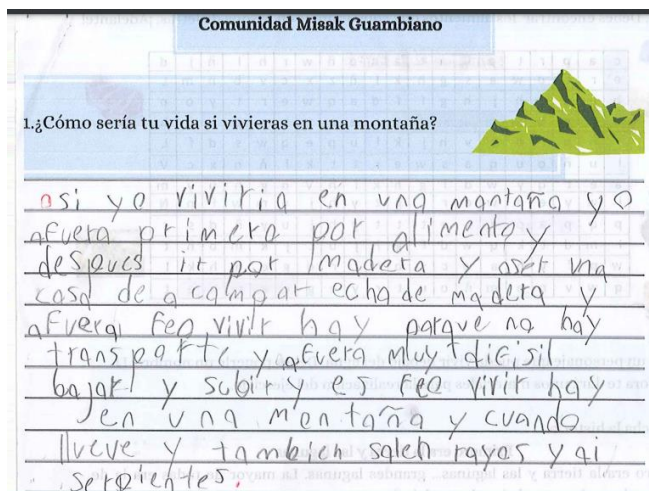 Comunidad Misak Guambiano
1.¿Cómo sería tu vida si vivieras en una montaña?
osi yo viviria en una mantaña yo
afuera primero por alimento y
despues ir por madera y aser una
casa de acampar echa de madera y
afuera feo vivir hay porque no hay
transparte y afuera muy dicisil
bajar y subir y es feo vivir hay
en una montaña y cuando
llueve y tambien salen rayos y ai
serpientes.